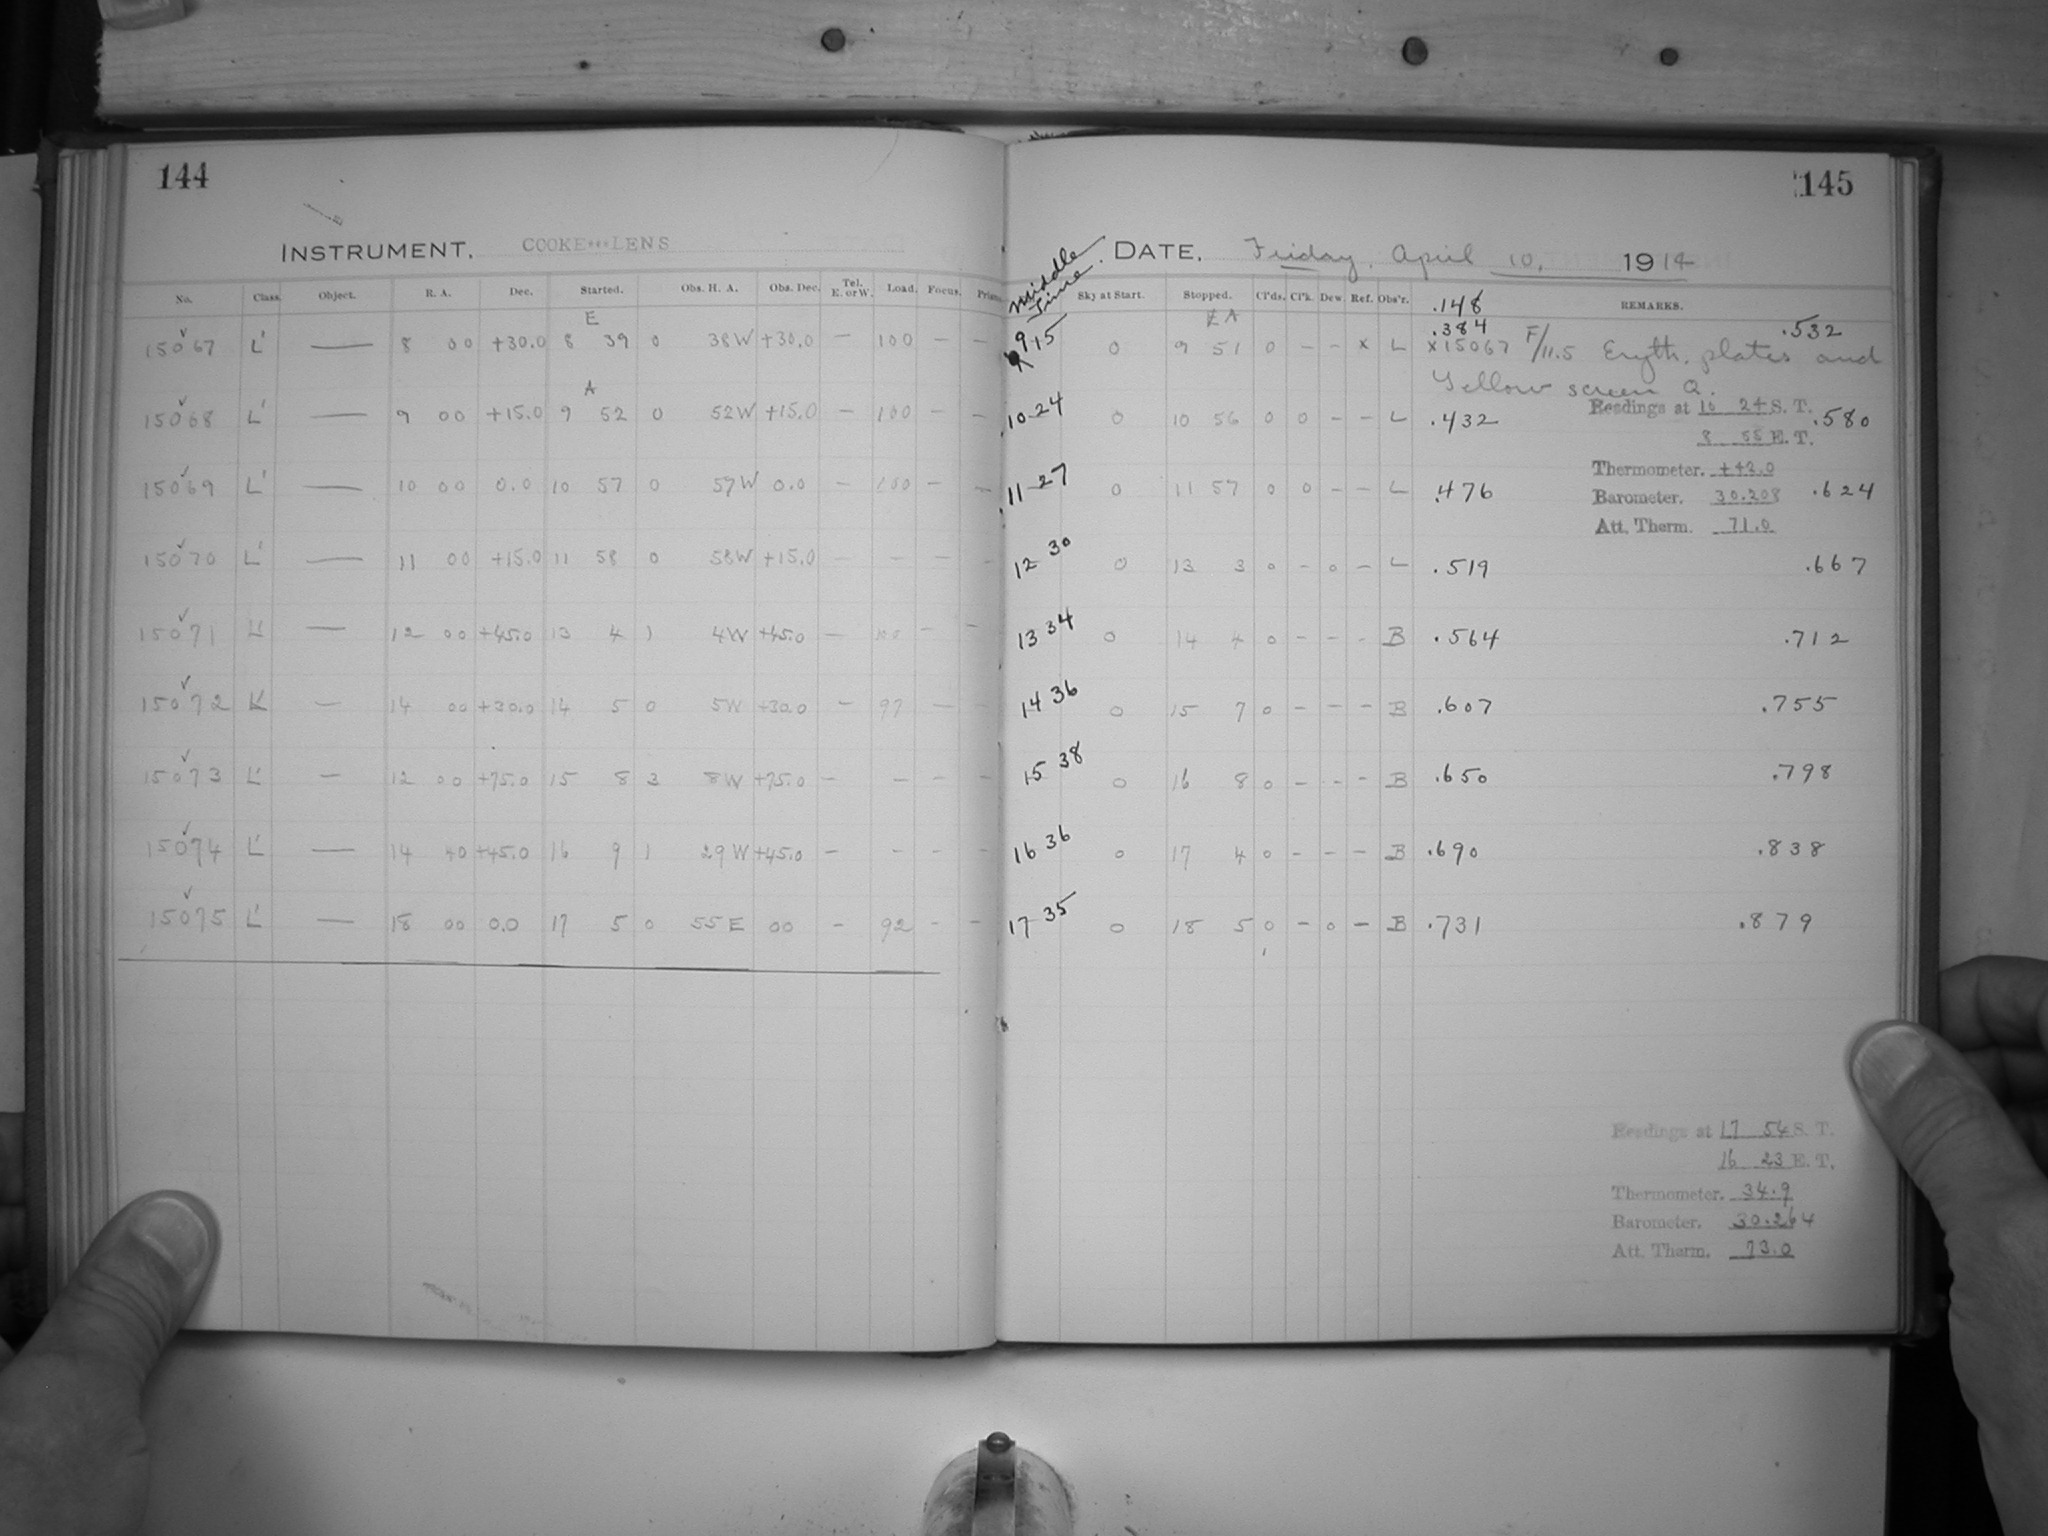 144
INSTRUMENT. COOKE***LENS
No. Class. Object. R. A. Dec. Started. Obs. H. A. Obs. Dec. Tel. E. or W. Load. Focus. Prism.
E
15067 L' — 8 00 +30.0 8 39 0 38W +30.0 — 100 — —
A
15068 L' — 9 00 +15.0 9 52 0 52W +15.0 — 100 — —
15069 L' — 10 00 0.0 10 57 0 57W 0.0 — 100 — —
15070 L' — 11 00 +15.0 11 58 0 58W +15.0 — — — —
15071 L' — 12 00 +45.0 13 4 1 4W +45.0 — 100 — —
15072 K — 14 00 +30.0 14 5 0 5W +30.0 — 97 — —
15073 L' — 12 00 +75.0 15 8 3 8W +75.0 — — — —
15074 L' — 14 40 +45.0 16 9 1 29W +45.0 — — — —
15075 L' — 18 00 0.0 17 5 0 55E 00 — 92 — —
145
Middle Time. DATE, Friday, April 10, 1914
Sky at Start. Stopped. Cl'ds. Cl'k. Dew. Ref. Obs'r. .148 REMARKS.
.384 .532
9 15 0 9 51 0 — — x L x15067 F/11.5 Eryth. plates and
Yellow screen a.
Readings at 10 24 S. T.
10 24 0 10 56 0 0 — — L .432 .580
8 55 E. T.
Thermometer. +42.0
11 27 0 11 57 0 0 — — L .476 Barometer. 30.208 .624
Att. Therm. 71.0
12 30 0 13 3 0 — 0 — L .519 .667
13 34 0 14 4 0 — — — B .564 .712
14 36 0 15 7 0 — — — B .607 .755
15 38 0 16 8 0 — — — B .650 .798
16 36 0 17 4 0 — — — B .690 .838
17 35 0 18 5 0 — 0 — B .731 .879
Readings at 17 54 S. T.
16 23 E. T.
Thermometer. 34.9
Barometer. 30.264
Att. Tharm. 73.0